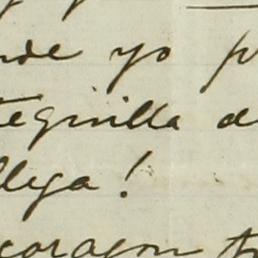 nde yo p
teguilla d
llega!
corazon tr